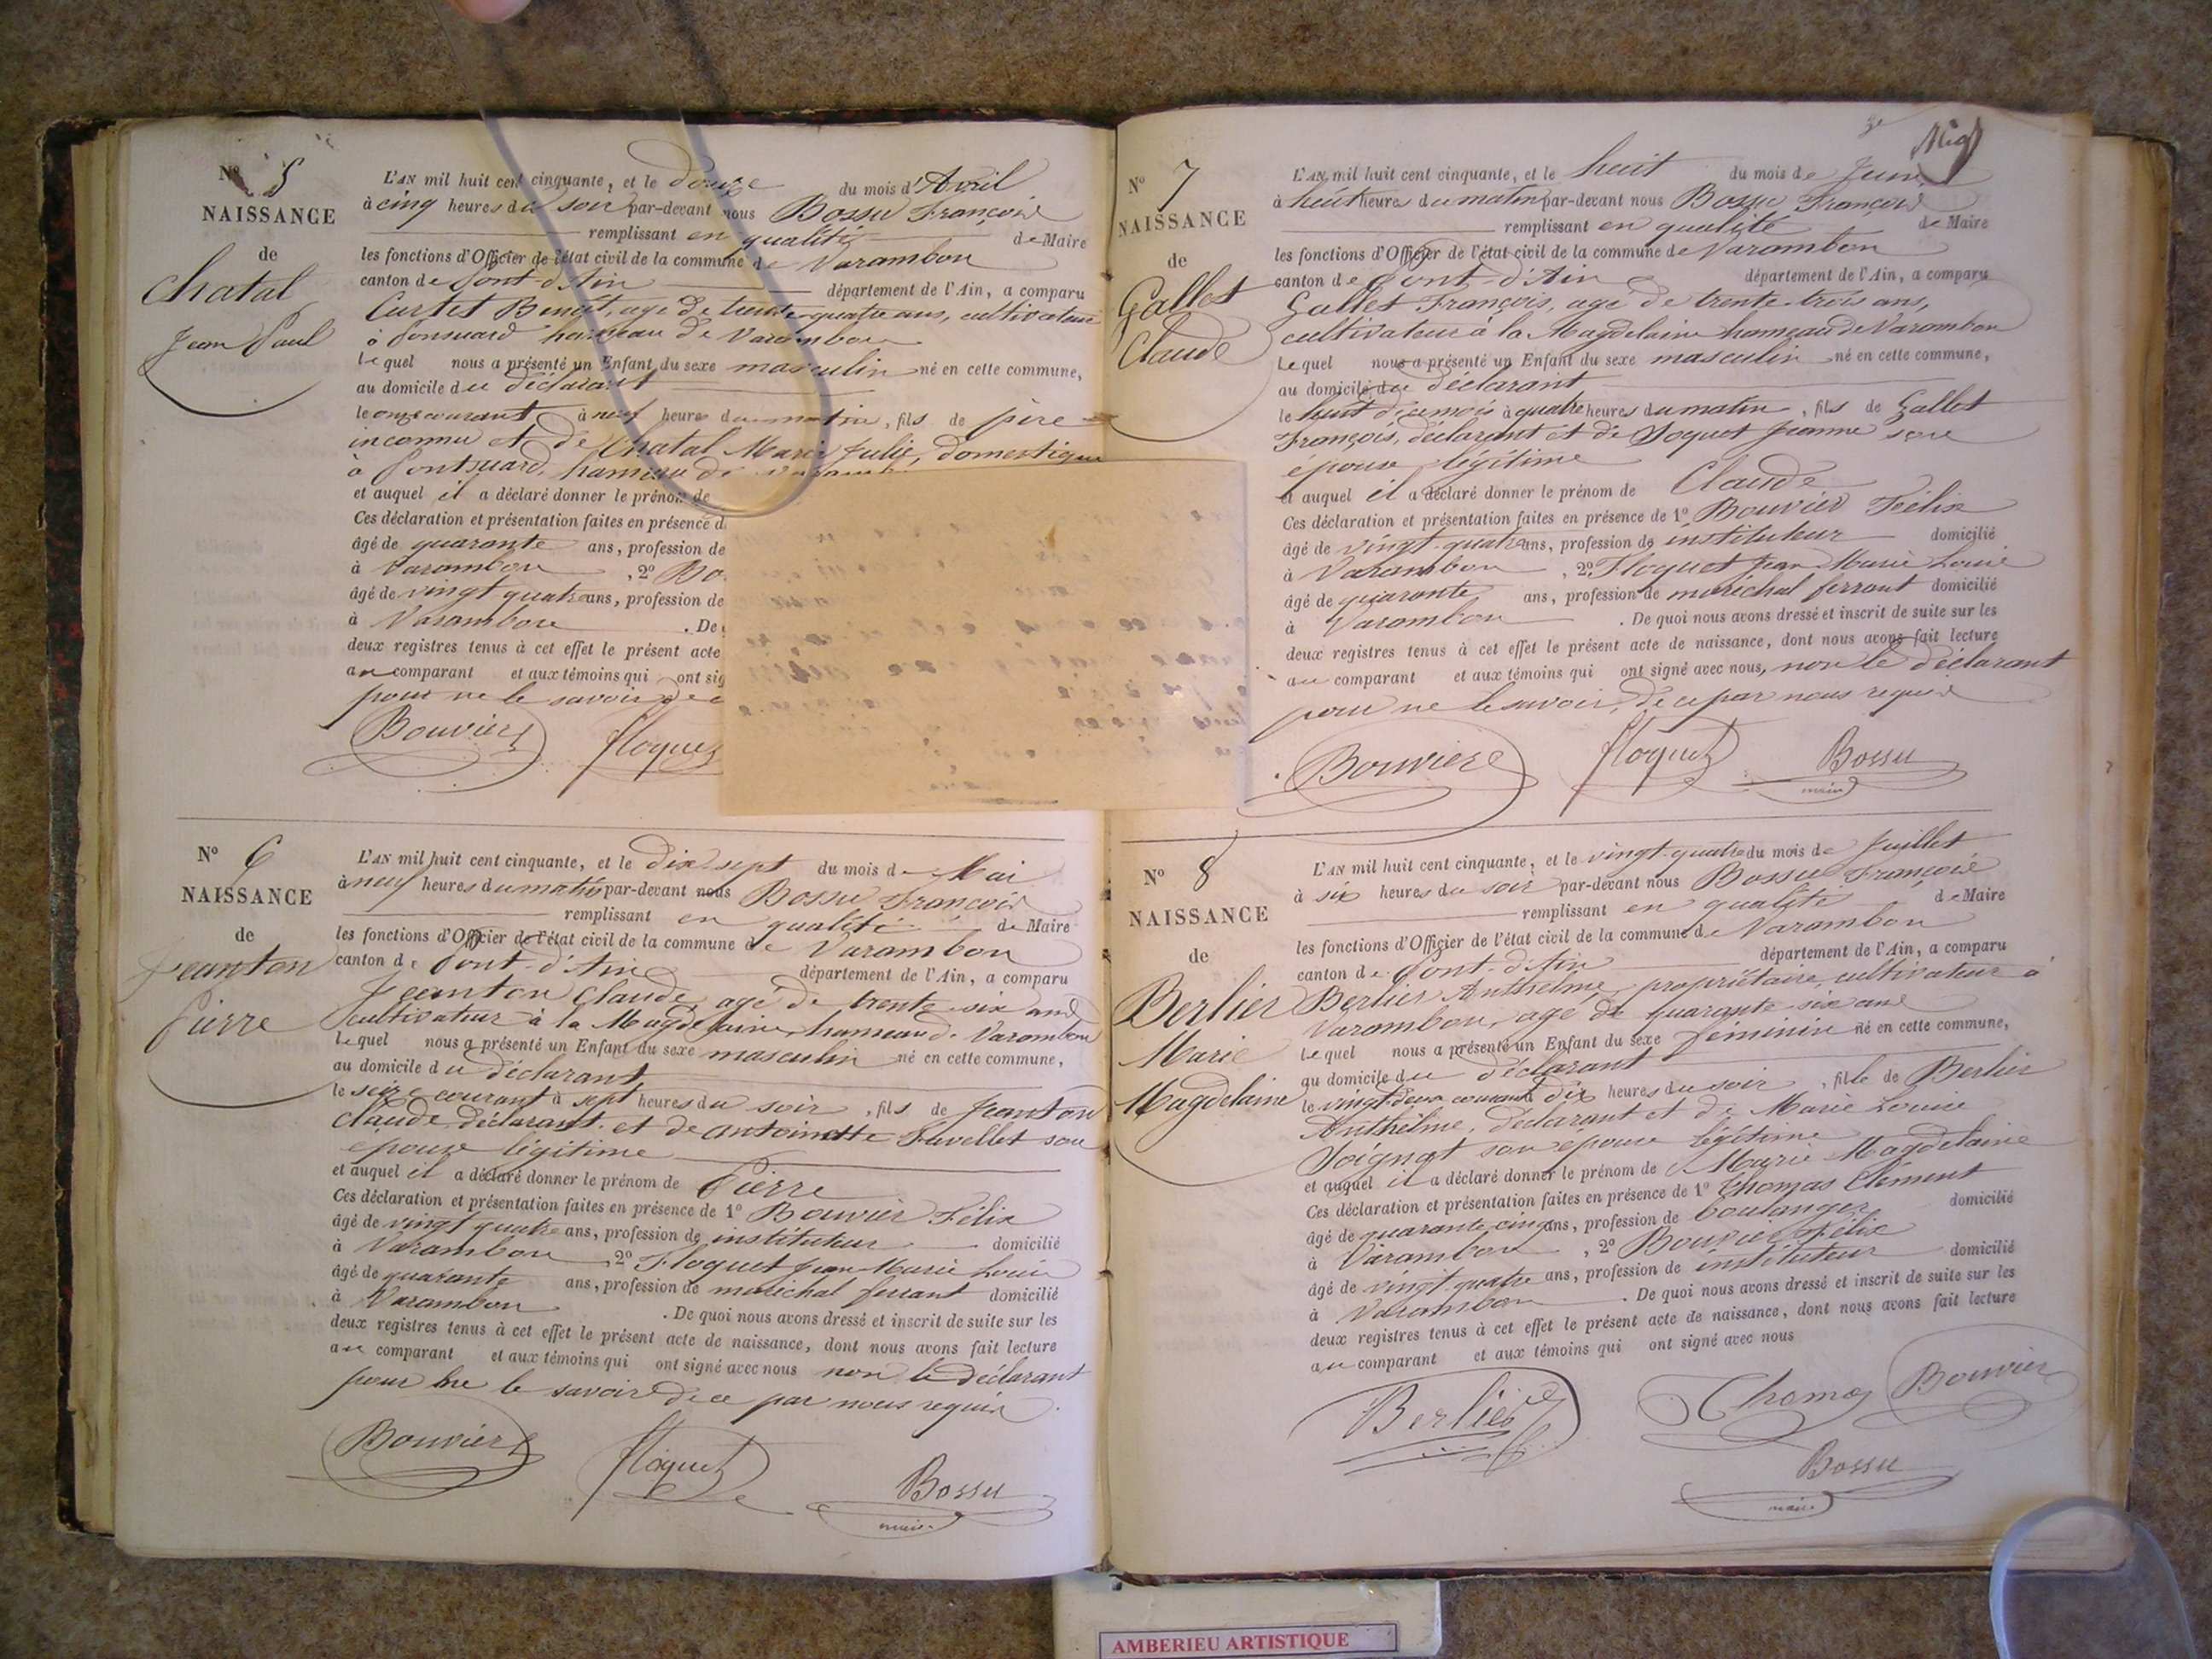 Nº 5
NAISSANCE
de
Chatal
Jean Paul
L'AN mil huit cent cinquante, et le douze du mois d'Avril
à cinq heures du soir par-devant nous Bossu François
remplissant en qualité de Maire
les fonctions d'Officier de l'état civil de la commune de Varambon
canton de Pont-d'Ain département de l'Ain, a comparu
Curtet Benoît, agé de trente-quatre ans, cultivateur
à hameau de Varambon
Lequel nous a présenté un Enfant du sexe masculin né en cette commune,
au domicile du déclarant
le onze courant à neuf heures du matin, fils de père
inconnu et de Chatal Marie Julie, domestique
à hameau de
et auquel il a déclaré donner le prénom de
Ces déclaration et présentation faites en présence d
âgé de quarante ans, profession de
à Varambon, 2º Bo
âgé de vingt quatre ans, profession de
à Varambon. De
deux registres tenus à cet effet le présent acte
au comparant et aux témoins qui ont sig
pour ne le savoir de c
Bouvier Floquet
Nº 6
NAISSANCE
de
Jeanton
Pierre
L'AN mil huit cent cinquante, et le dix-sept du mois de Mai
à neuf heures du matin par-devant nous Bossu François
remplissant en qualité de Maire
les fonctions d'Officier de l'état civil de la commune de Varambon
canton de Pont-d'Ain département de l'Ain, a comparu
Jeanton Claude, agé de trente-six ans
cultivateur à la Magdelaine, hameau de Varambon
Lequel nous a présenté un Enfant du sexe masculin né en cette commune,
au domicile du déclarant
le seize courant à sept heures du soir, fils de Jeanton
Claude, déclarant et de antoinette son
epouse légitime
et auquel il a déclaré donner le prénom de Pierre
Ces déclaration et présentation faites en présence de 1º Bouvier Félix
âgé de vingt quatre ans, profession de instituteur domicilié
à Varambon, 2º Floquet Jean Marie Louis
âgé de quarante ans, profession de maréchal ferrant domicilié
à Varambon. De quoi nous avons dressé et inscrit de suite sur les
deux registres tenus à cet effet le présent acte de naissance, dont nous avons fait lecture
au comparant et aux témoins qui ont signé avec nous non le déclarant
pour ne le savoir de ce par nous requis
Bouvier Floquet Bossu
maire
Nº 7
NAISSANCE
de
Gallet
Claude
L'AN mil huit cent cinquante, et le huit du mois de Juin
à huit heures du matin par-devant nous Bossu François
remplissant en qualité de Maire
les fonctions d'Officier de l'état civil de la commune de Varambon
canton de Pont-d'Ain département de l'Ain, a comparu
Gallet François, agé de trente-trois ans,
cultivateur à la Magdelaine hameau de Varambon
Lequel nous a présenté un Enfant du sexe masculin né en cette commune,
au domicile du déclarant
le huit de ce mois à quatre heures du matin, fils de Gallet
François, déclarant et de Joquet Jeanne son
épouse légitime
et auquel il a déclaré donner le prénom de Claude
Ces déclaration et présentation faites en présence de 1º Bouvier Félix
âgé de vingt-quatre ans, profession de instituteur domicilié
à Varambon, 2º Floquet Jean Marie Louis
âgé de quarante ans, profession de maréchal ferrant domicilié
à Varambon. De quoi nous avons dressé et inscrit de suite sur les
deux registres tenus à cet effet le présent acte de naissance, dont nous avons fait lecture
au comparant et aux témoins qui ont signé avec nous, non le déclarant
pour ne le savoir, de ce par nous requis
Bouvier Floquet Bossu
maire
Nº 8
NAISSANCE
de
Berlier
Marie
Magdelaine
L'AN mil huit cent cinquante, et le vingt-quatre du mois de Juillet
à six heures du soir par-devant nous Bossu François
remplissant en qualité de Maire
les fonctions d'Officier de l'état civil de la commune de Varambon
canton de Pont-d'Ain département de l'Ain, a comparu
Berlier Anthelme, propriétaire, cultivateur à
Varambon, agé de quarante-six ans
Lequel nous a présenté un Enfant du sexe féminin né en cette commune,
au domicile du déclarant
le vingt-deux courant à dix heures du soir, fille de Berlier
Anthelme, déclarant et de Marie Louise
Soignat son epouse légitime
et auquel il a déclaré donner le prénom de Marie Magdelaine
Ces déclaration et présentation faites en présence de 1º Thomas Clément
âgé de quarante cinq ans, profession de boulanger domicilié
à Varambon, 2º Bouvier Félix
âgé de vingt quatre ans, profession de instituteur domicilié
à Varambon. De quoi nous avons dressé et inscrit de suite sur les
deux registres tenus à cet effet le présent acte de naissance, dont nous avons fait lecture
au comparant et aux témoins qui ont signé avec nous
Berlier Thomas Bouvier
Bossu
maire
AMBERIEU ARTISTIQUE